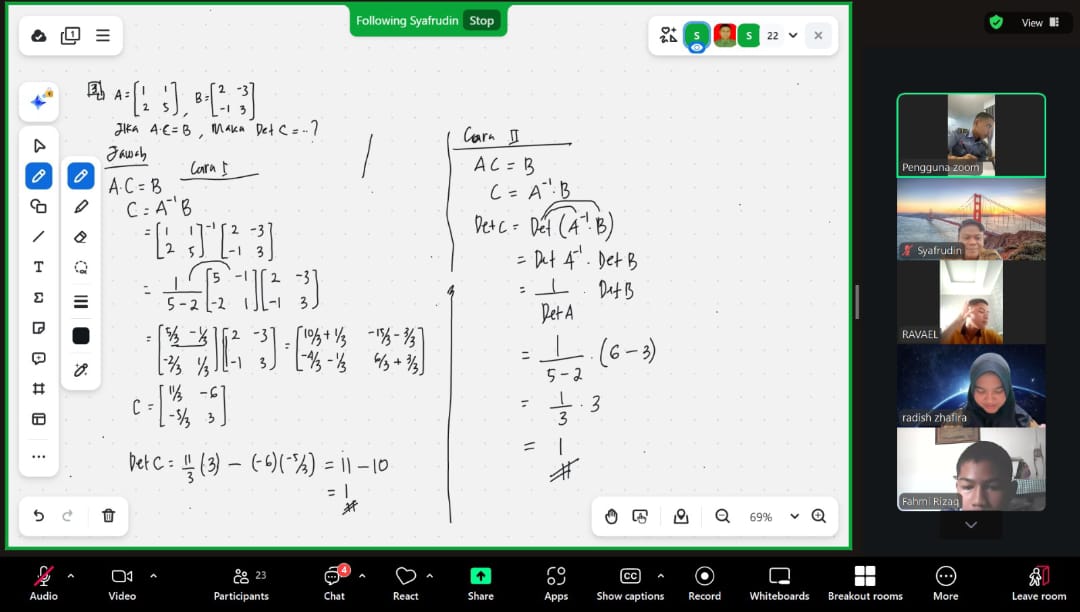 Following Syafrudin Stop
S S 22
View
3. A = [1 1; 2 5], B = [2 -3; -1 3]
Jika A.C = B, Maka Det C = ..?
Jawab
Cara I
A.C = B
C = A⁻¹ B
= [1 1; 2 5]⁻¹ [2 -3; -1 3]
= 1/(5-2) [5 -1; -2 1] [2 -3; -1 3]
= [5/3 -1/3; -2/3 1/3] [2 -3; -1 3] = [10/3+1/3 -15/3-3/3; -4/3-1/3 6/3+3/3]
C = [11/3 -6; -5/3 3]
Det C = 11/3 (3) - (-6)(-5/3) = 11 - 10
= 1
Cara II
AC = B
C = A⁻¹. B
Det C = Det (A⁻¹. B)
= Det A⁻¹ . Det B
= 1/Det A . Det B
= 1/(5-2) . (6-3)
= 1/3 . 3
= 1
69%
Pengguna zoom
Syafrudin
RAVAEL
radish zhafira
Fahmi Rizaq
4
23
Audio Video Participants Chat React Share Apps Show captions Record Whiteboards Breakout rooms More Leave room